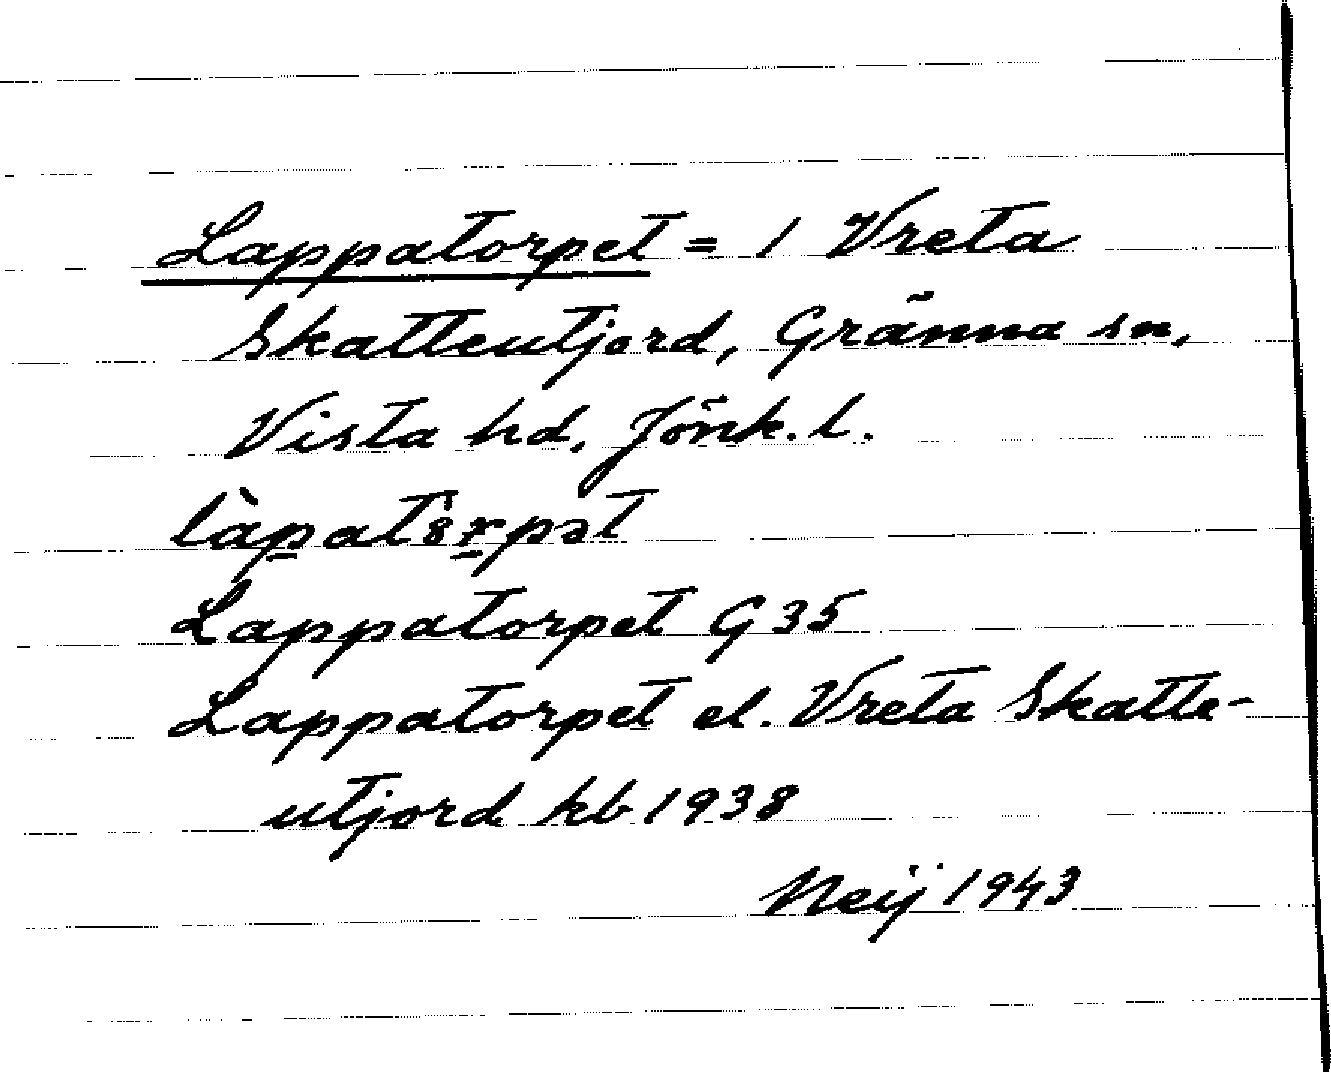 Lappatorpet = 1 Vreta
Skatteutjord, Gränna sn,
Vista hd, Jönk. l.
Lappatorpet G 35
Lappatorpet el. Vreta Skatte-
utjord kb 1938
Neij 1943